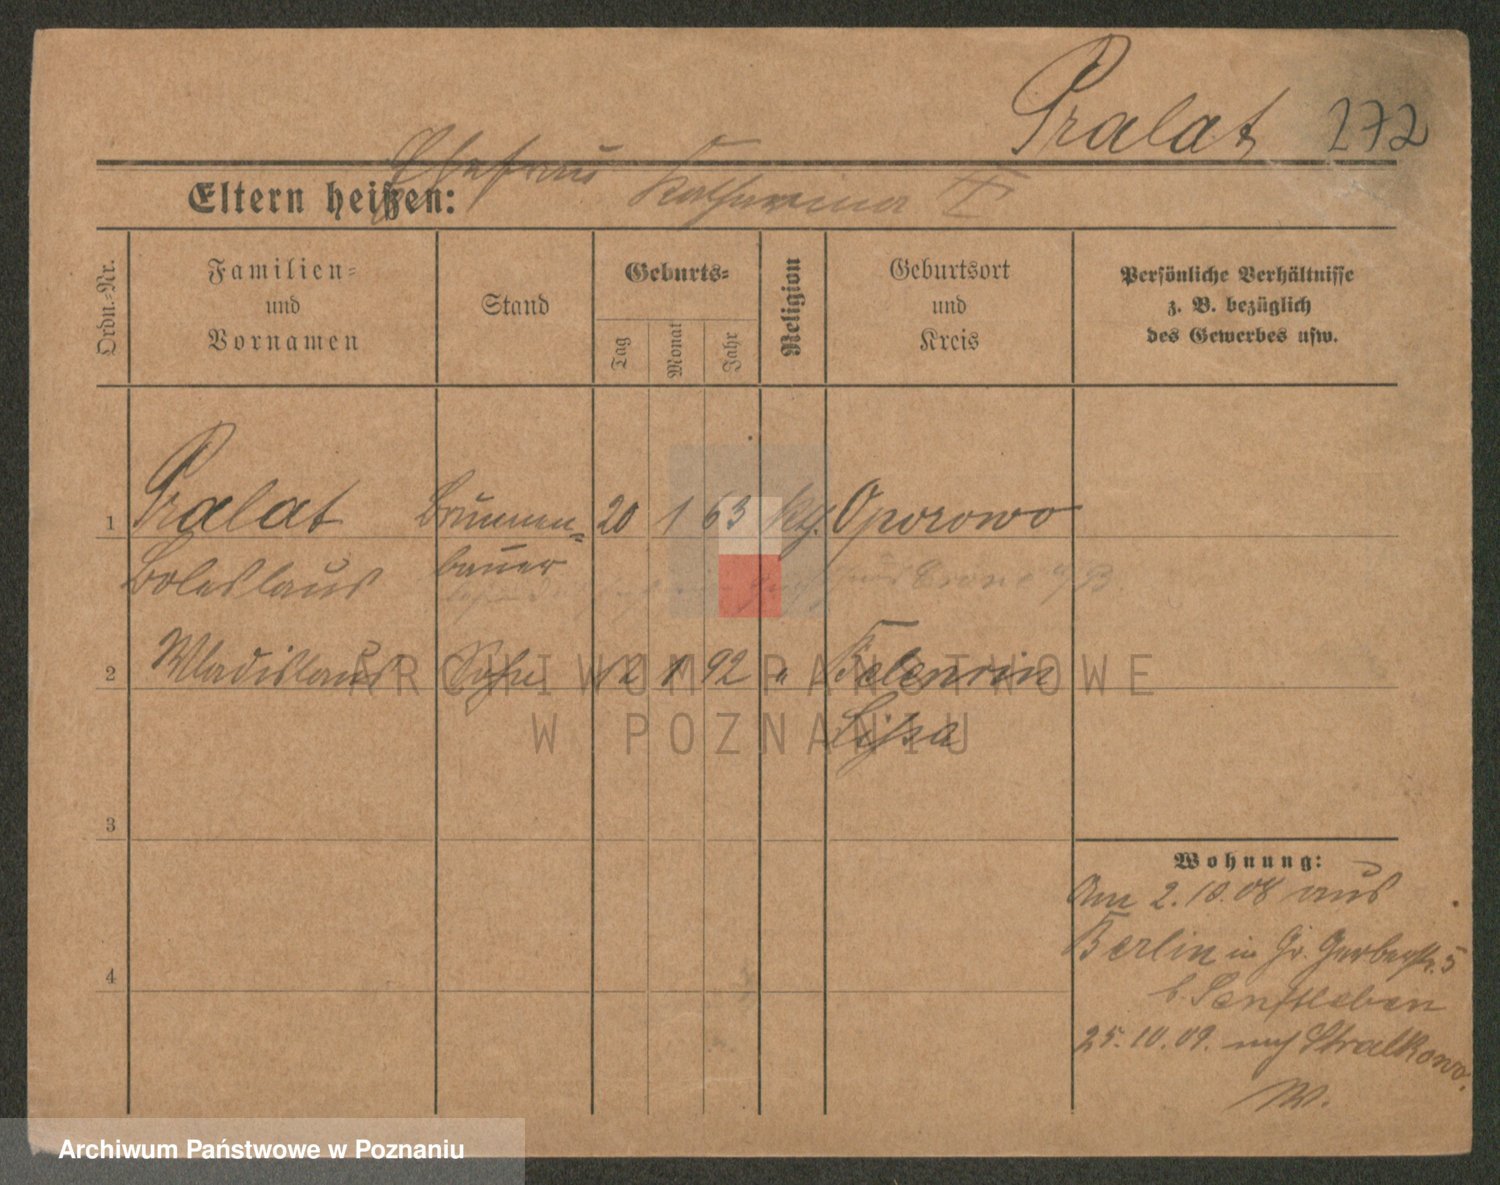 Pralat 272
Ehefrau Katharina
Eltern heißen:
Ordn.-Nr.
Familien-
und
Vornamen
Stand
Geburts-
Tag
Monat
Jahr
Religion
Geburtsort
und
Kreis
Persönliche Verhältnisse
z. B. bezüglich
des Gewerbes usw.
1 Pralat Brunnen- 20 1 63 kth. Oporowo
Boleslaus bauer
2 Wladislaus Sohn 12 1 92 "
Lissa
3
4
Wohnung:
Am 2.10.08 aus
Berlin in Gr. Gerberstr. 5
b. Senftleben
25.10.09. nach Stralkowo.
W.
ARCHIWUM PAŃSTWOWE
W POZNANIU
Archiwum Państwowe w Poznaniu